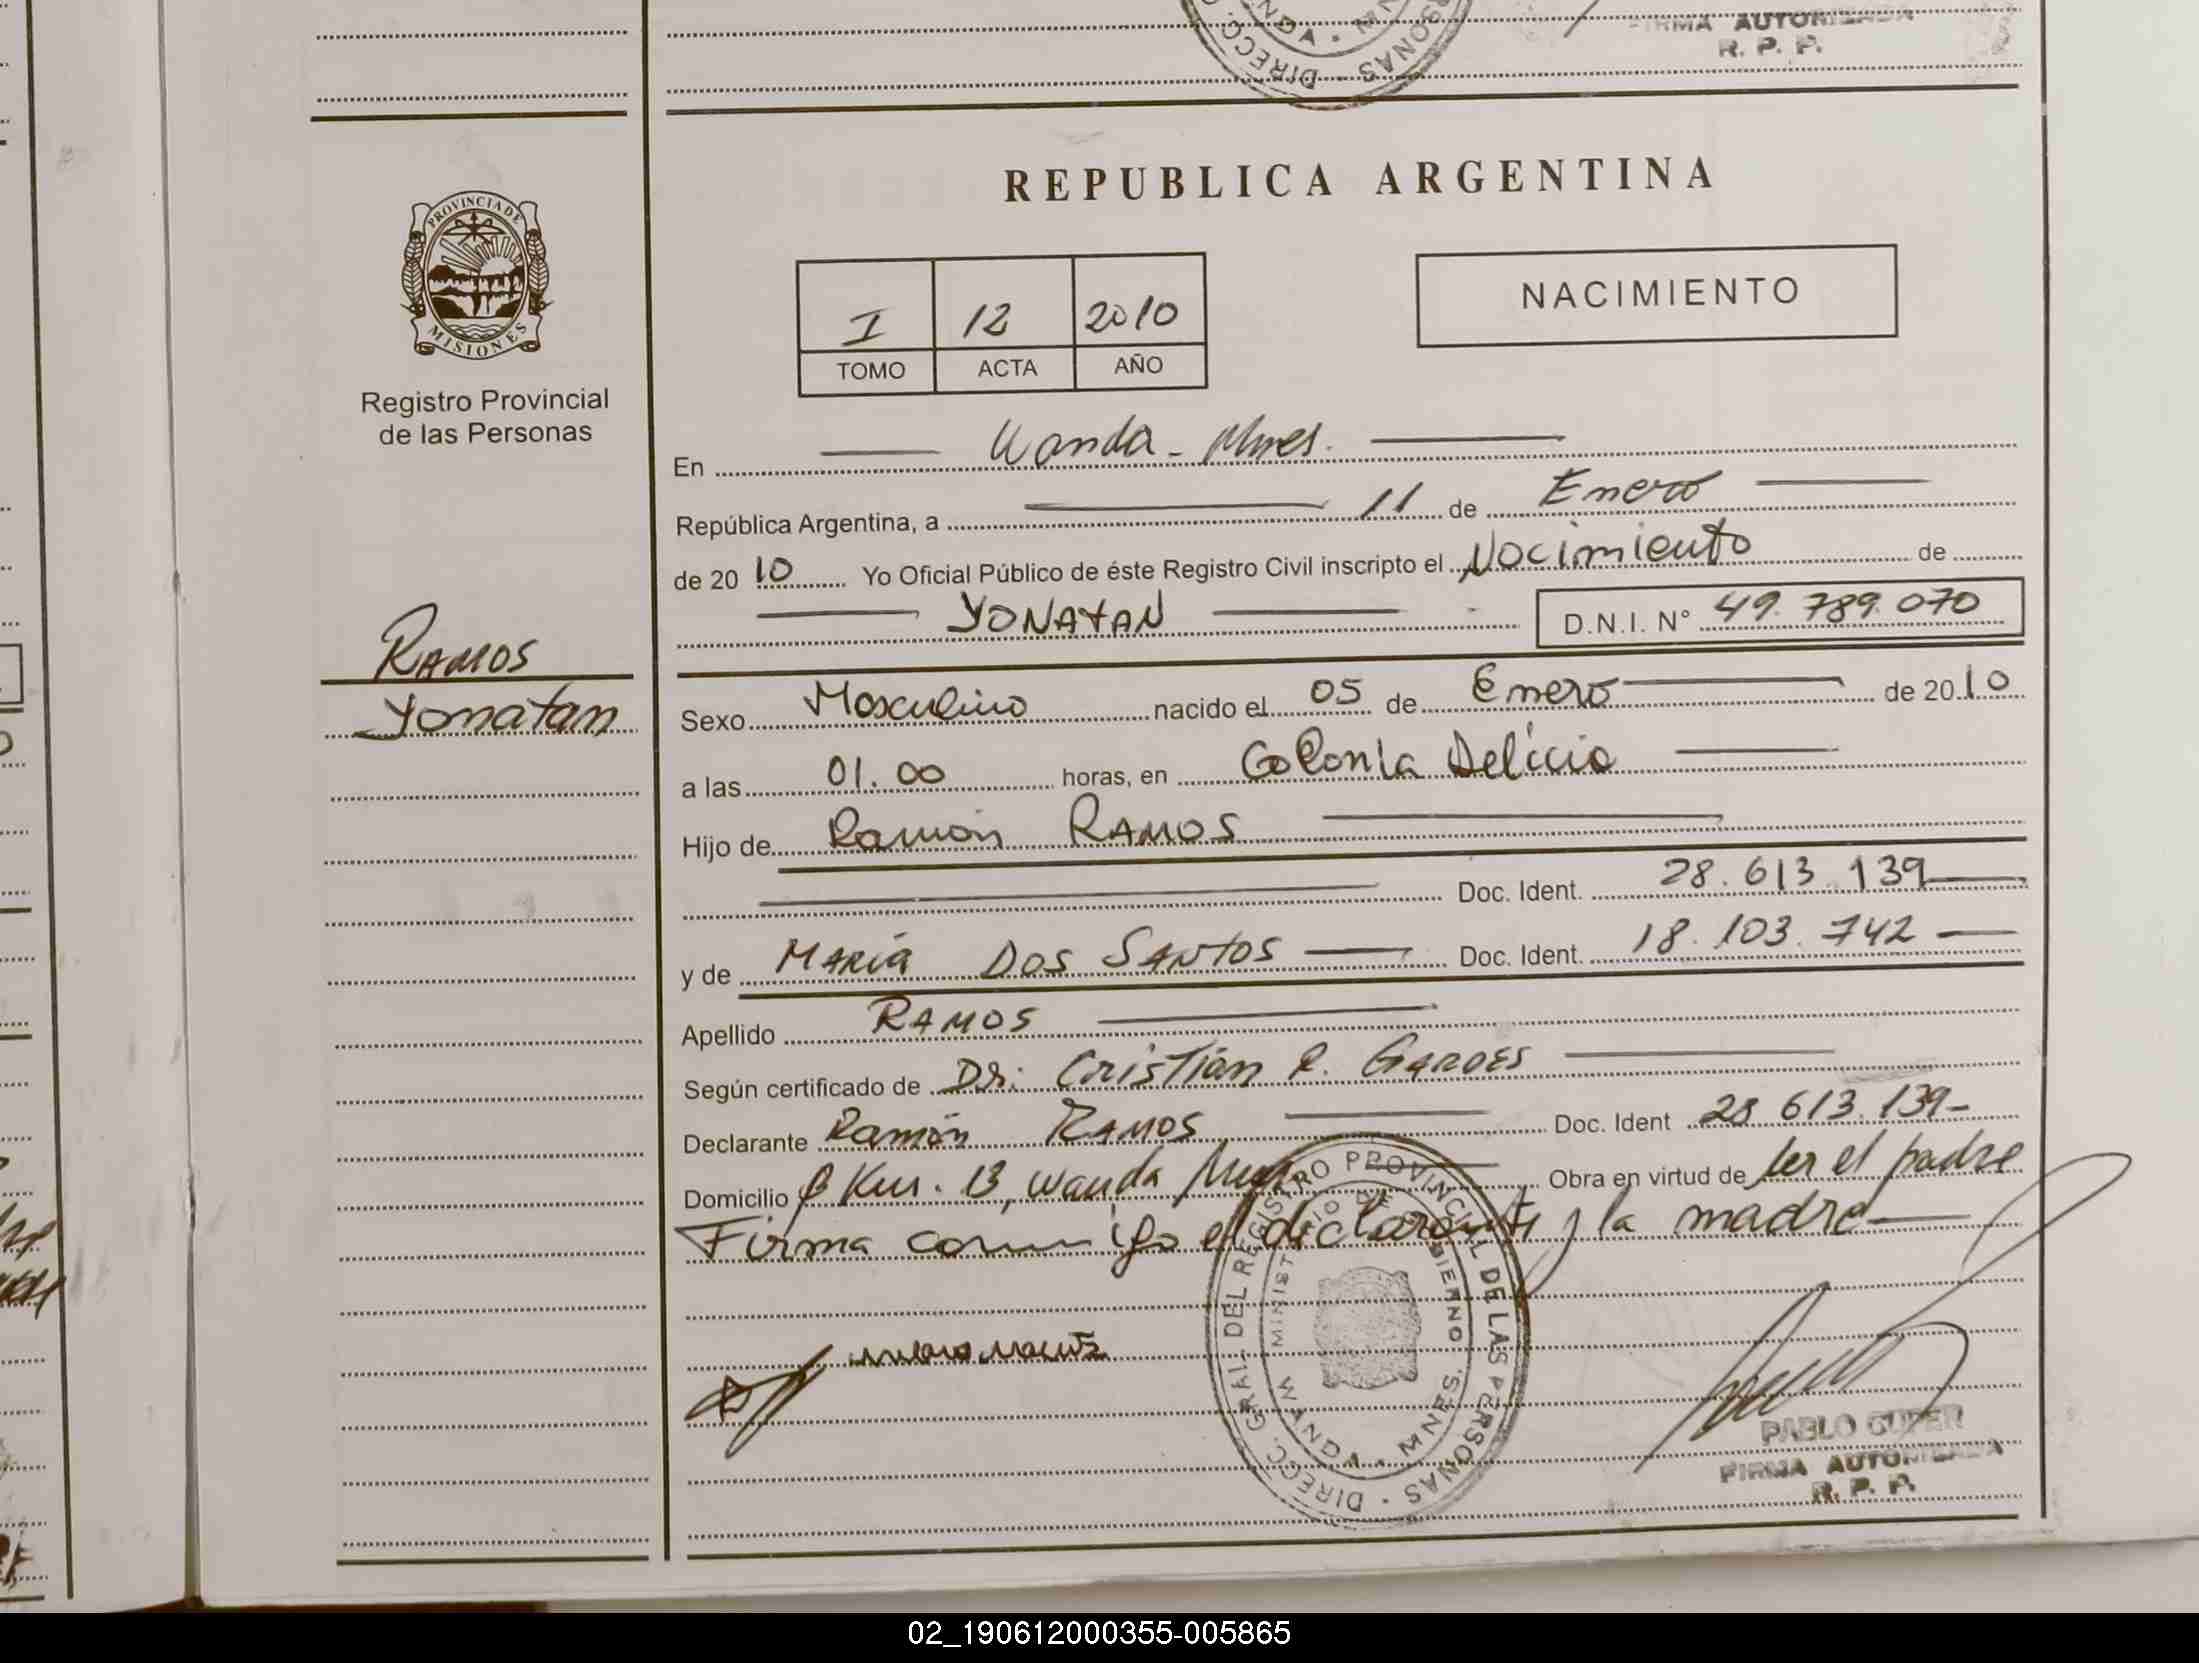 FIRMA AUTORIZADA
R. P. P.
PROVINCIA DE
MISIONES
Registro Provincial
de las Personas
RAMOS
Yonatan
REPUBLICA ARGENTINA
I 12 2010
TOMO ACTA AÑO
NACIMIENTO
En Wanda - Mnes.
República Argentina, a 11 de Enero
de 20 10 Yo Oficial Público de éste Registro Civil inscripto el Nacimiento de
YONATAN D.N.I. N° 49.789.070
Sexo Masculino nacido el 05 de Enero de 20 10
a las 01.00 horas, en Colonia Delicia
Hijo de Ramón RAMOS
Doc. Ident. 28.613.139
y de MARÍA DOS SANTOS Doc. Ident. 18.103.742
Apellido RAMOS
Según certificado de Dr. Cristian R. GARDES
Declarante Ramón RAMOS Doc. Ident 28.613.139-
Domicilio Km. 13, Wanda Mnes Obra en virtud de ser el padre
Firma conmigo el declarante y la madre
DIRECC. GRAL. DEL REGISTRO PROVINCIAL DE LAS PERSONAS
MINISTERIO DE GOBIERNO
WANDA - MNES.
PABLO
FIRMA AUTORIZADA
R. P. P.
02_190612000355-005865